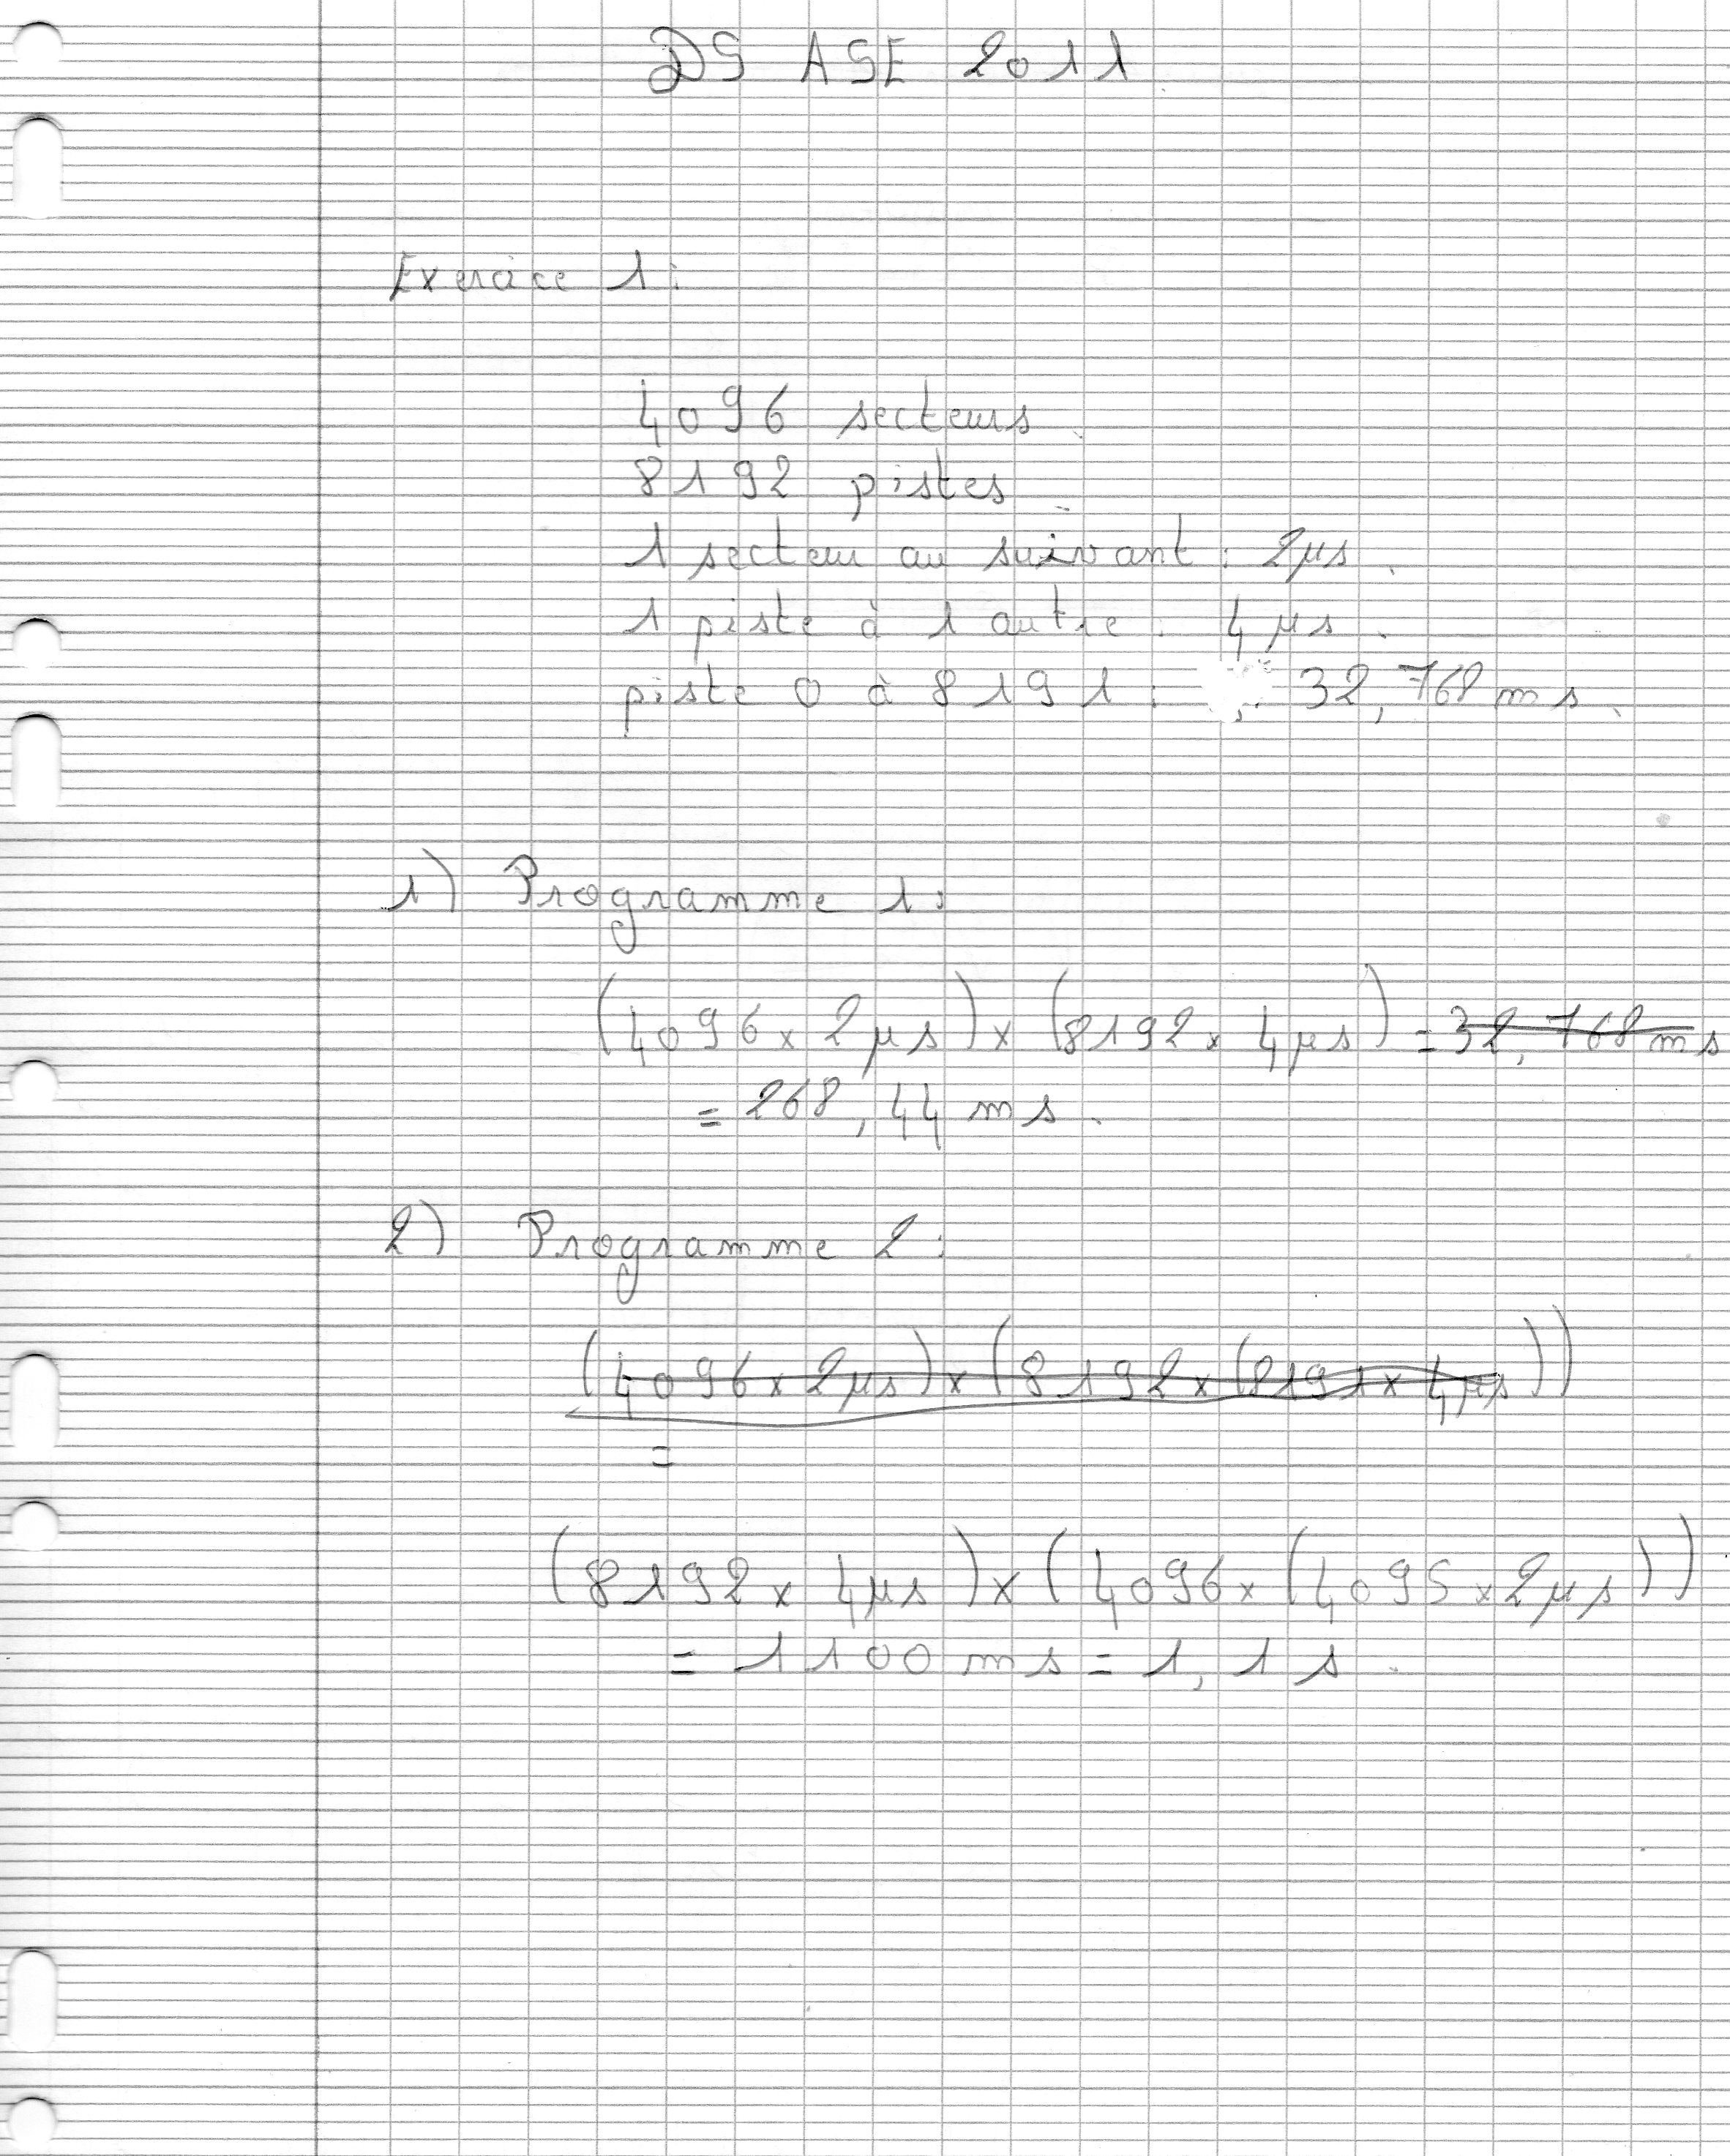 DS ASE 2011
Exercice 1:
4096 secteurs.
8192 pistes.
1 secteur au suivant : 2µs.
1 piste à 1 autre : 4 µs.
piste 0 à 8191 : 32,768 ms.
1) Programme 1:
(4096 x 2µs) x (8192 x 4µs) = 32,768 ms
= 268,44 ms.
2) Programme 2:
(4096 x 2µs) x (8192 x (8191 x 4µs))
=
(8192 x 4µs) x (4096 x (4095 x 2µs))
= 1100 ms = 1,1 s.